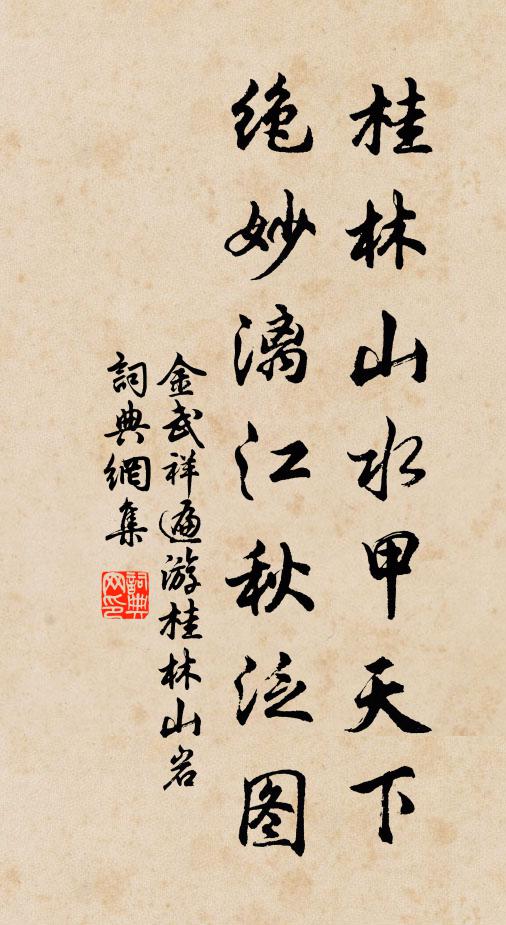 桂林山水甲天下
绝妙漓江秋泛图
金武祥遍游桂林山岩
詞典網集
詞典
网印